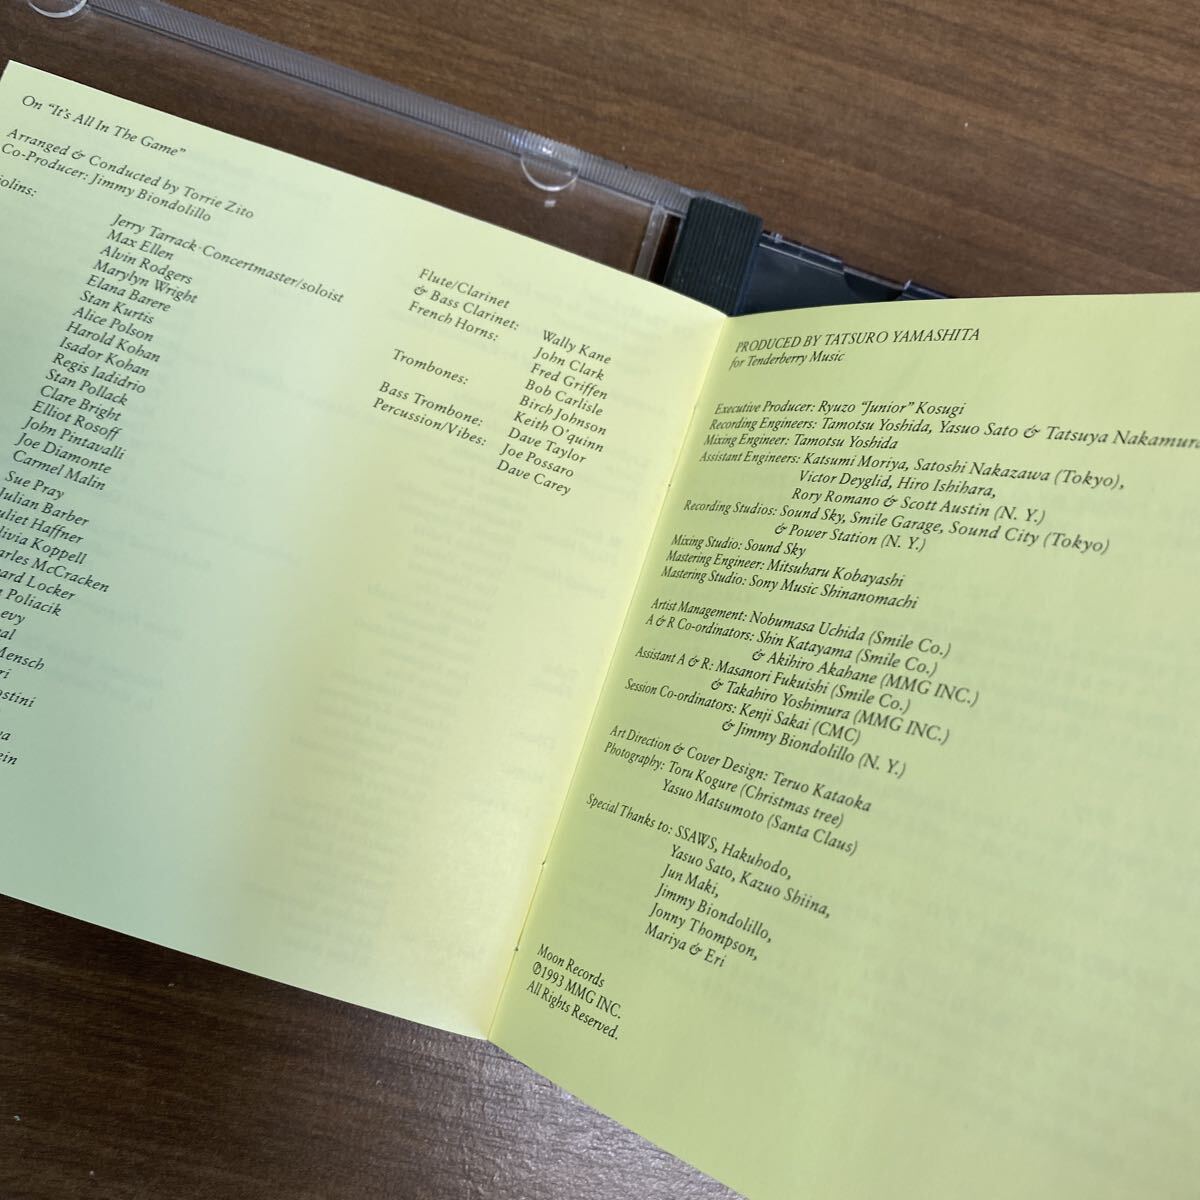 On "It's All In The Game"
Arranged & Conducted by Torrie Zito
Co-Producer: Jimmy Biondolillo
Jerry Tarrack·Concertmaster/soloist
Max Ellen
Alvin Rodgers
Marylyn Wright
Elana Barere
Stan Kurtis
Alice Polson
Harold Kohan
Isador Kohan
Regis Iadidrio
Stan Pollack
Clare Bright
Elliot Rosoff
John Pintavalli
Joe Diamonte
Carmel Malin
Sue Pray
Julian Barber
Haffner
Koppell
McCracken
Locker
Poliacik
Mensch
Flute/Clarinet
& Bass Clarinet: Wally Kane
French Horns: John Clark
Fred Griffen
Bob Carlisle
Trombones: Birch Johnson
Keith O'quinn
Bass Trombone: Dave Taylor
Percussion/Vibes: Joe Possaro
Dave Carey
PRODUCED BY TATSURO YAMASHITA
for Tenderberry Music
Executive Producer: Ryuzo "Junior" Kosugi
Recording Engineers: Tamotsu Yoshida, Yasuo Sato & Tatsuya Nakamura
Mixing Engineer: Tamotsu Yoshida
Assistant Engineers: Katsumi Moriya, Satoshi Nakazawa (Tokyo),
Victor Deyglid, Hiro Ishihara,
Rory Romano & Scott Austin (N. Y.)
Recording Studios: Sound Sky, Smile Garage, Sound City (Tokyo)
& Power Station (N. Y.)
Mixing Studio: Sound Sky
Mastering Engineer: Mitsuharu Kobayashi
Mastering Studio: Sony Music Shinanomachi
Artist Management: Nobumasa Uchida (Smile Co.)
A & R Co-ordinators: Shin Katayama (Smile Co.)
& Akihiro Akahane (MMG INC.)
Assistant A & R: Masanori Fukuishi (Smile Co.)
& Takahiro Yoshimura (MMG INC.)
Session Co-ordinators: Kenji Sakai (CMC)
& Jimmy Biondolillo (N. Y.)
Art Direction & Cover Design: Teruo Kataoka
Photography: Toru Kogure (Christmas tree)
Yasuo Matsumoto (Santa Claus)
Special Thanks to: SSAWS, Hakuhodo,
Yasuo Sato, Kazuo Shiina,
Jun Maki,
Jimmy Biondolillo,
Jonny Thompson,
Mariya & Eri
Moon Records
℗1993 MMG INC.
All Rights Reserved.